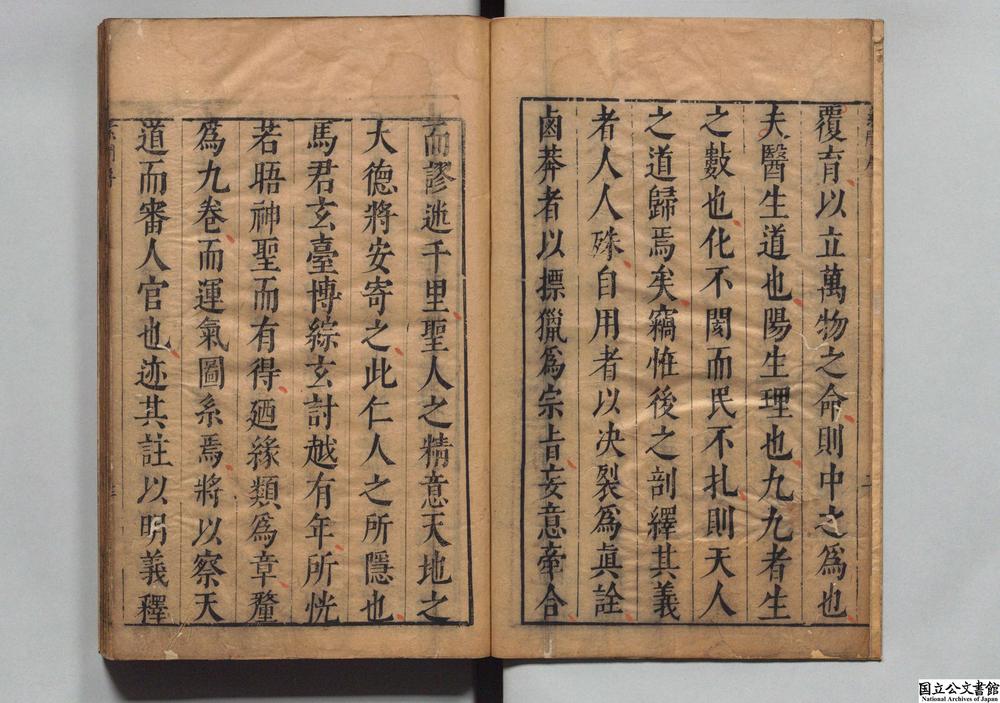 覆育以立萬物之命則中之爲也
夫醫生道也陽生理也九九者生
之數也化不閡而民不扎則天人
之道歸焉矣竊恠後之剖繹其義
者人人殊自用者以决裂爲眞詮
鹵莽者以摽獵爲宗旨妄意牽合
而謬迷千里聖人之精意天地之
大德將安寄之此仁人之所隱也
馬君玄臺博綜玄討越有年所恍
若晤神聖而有得廼緣類爲章釐
爲九卷而運氣圖系焉將以察天
道而審人官也迹其註以明義釋
国立公文書館
National Archives of Japan